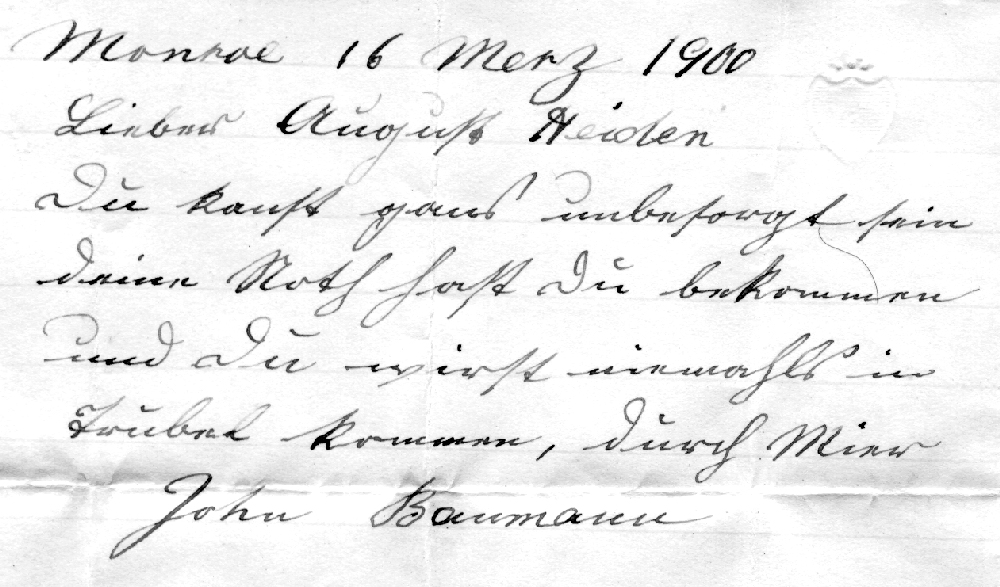 Monroe 16 Merz 1900
Lieber August Heiden
Du kanst gans unbesorgt sein
deine Noth hast Du bekommen
und Du wirst niemahls in
Trubel kommen, durch Mier
John Baumann